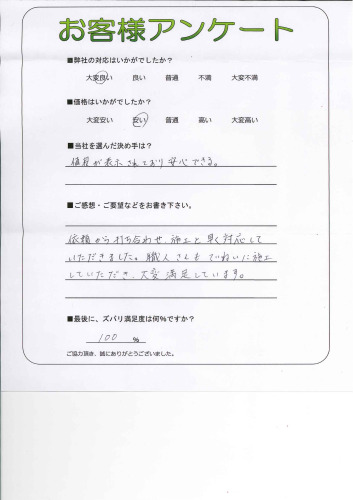 お客様アンケート
■弊社の対応はいかがでしたか?
大変良い 良い 普通 不満 大変不満
■価格はいかがでしたか?
大変安い 安い 普通 高い 大変高い
■当社を選んだ決め手は?
値段が表示されており安心できる。
■ご感想・ご要望などをお書き下さい。
依頼から打ち合わせ、施工と早く対応して
いただきました。職人さんもていねいに施工
していただき、大変満足しています。
■最後に、ズバリ満足度は何%ですか?
100 %
ご協力頂き、誠にありがとうございました。